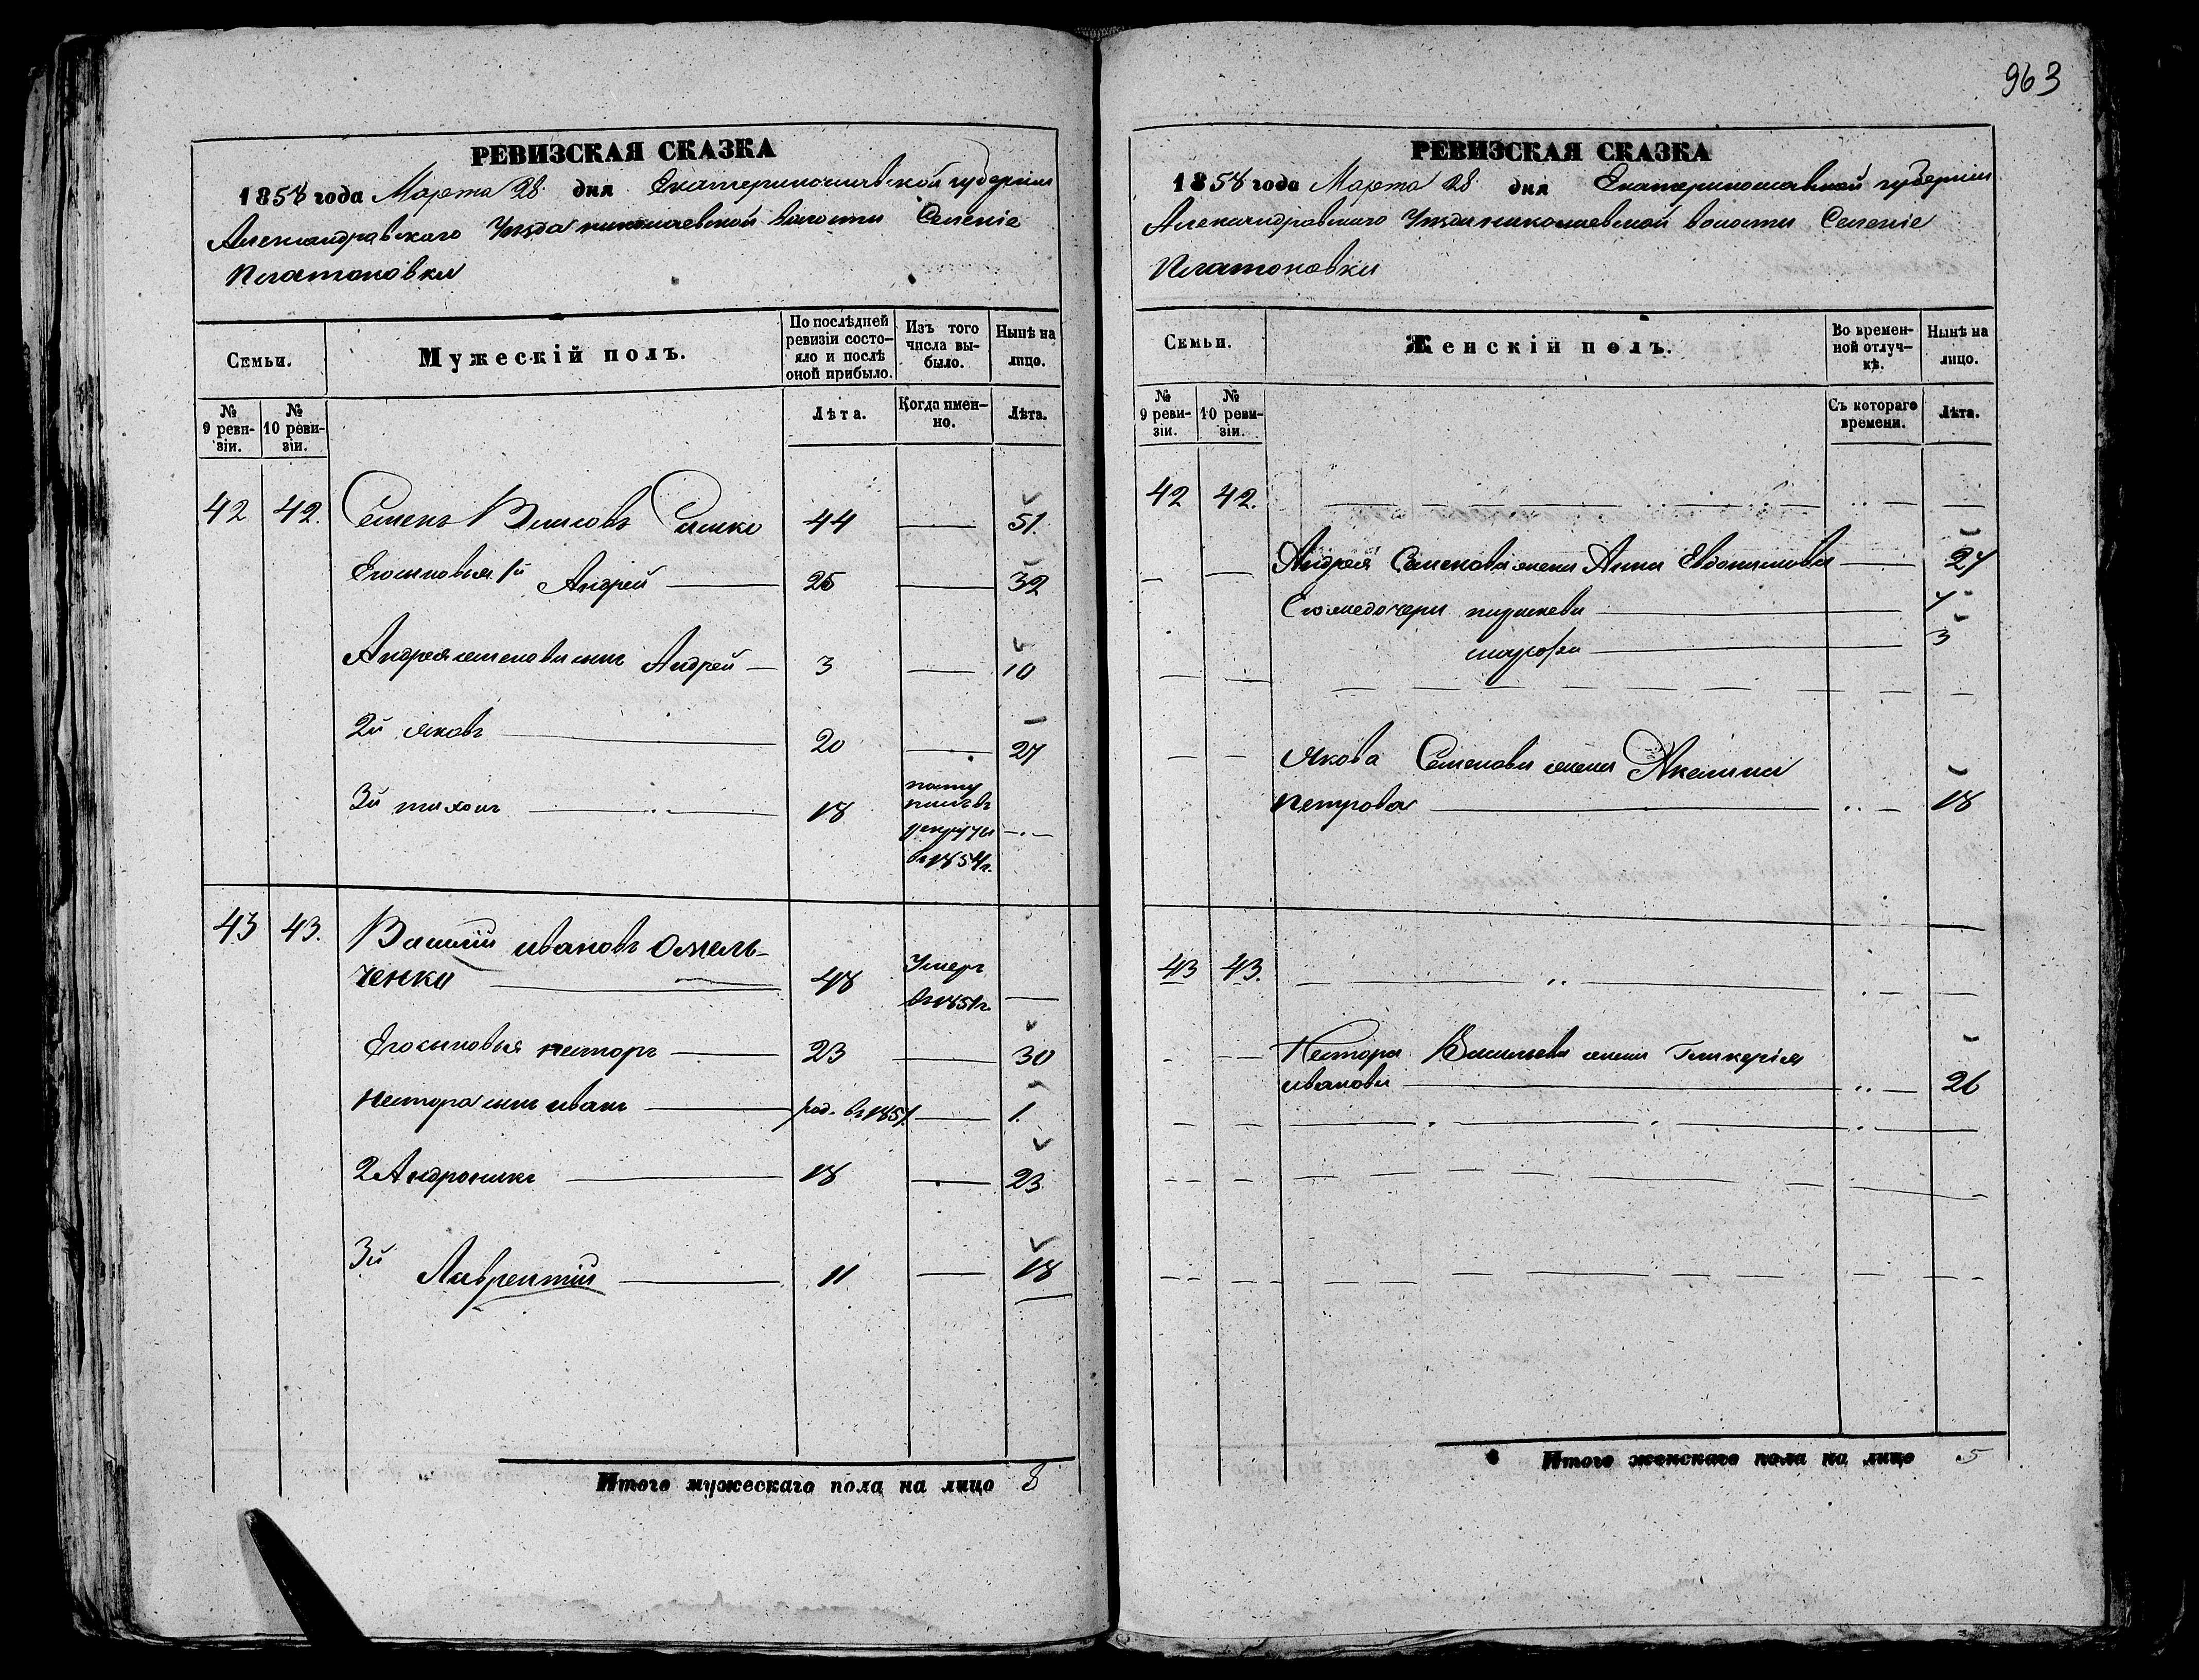 963
РЕВИЗСКАЯ СКАЗКА
1858 года Марта 28 дня Екатеринославской губерніи
Александравскаго Уѣзда николаевской волости Селеніе
Платоновки
Семьи.
Мужескій полъ.
По послѣдней ревизіи состояло и послѣ оной прибыло.
Изъ того числа выбыло.
Нынѣ на лицо.
№ 9 ревизіи.
№ 10 ревизіи.
Лѣта.
Когда именно.
Лѣта.
42 42. Семенъ Власовъ 44 — 51.
Егосыновья 1й Андрей — 25 — 32
Андрея семенова сынъ Андрей — 3 — 10
2й яковъ — 20 — 27
3й тихонъ — 18 — . —
въ
рекруты
въ 1854г.
43 43. Василій ивановъ Омель-
ченко — 48 Умеръ
въ 1851г. —
Егосыновья несторъ — 23 — 30
нестора сынъ иванъ — род. въ 1857. — 1.
2 Андроникъ — 18 — 23
3й Лаврентій — 11 — 18
Итого мужескаго пола на лицо 8
РЕВИЗСКАЯ СКАЗКА
1858 года Марта 28 дня Екатеринославской губерніи
Александравскаго Уѣзда николаевской волости Селеніе
Платоновки
Семьи.
Женскій полъ.
Во временной отлучкѣ.
Нынѣ на лицо.
№ 9 ревизіи.
№ 10 ревизіи.
Съ котораго времени.
Лѣта.
42 42.
Андрея Семенова жена Анна Евдокимова — 27
Еголиедочери — 7
— 3
Якова Семенова жена Акелина
петрова — 18
43 43.
Нестора Васильева жена Гликерія
иванова — 26
Итого женскаго пола на лицо 5